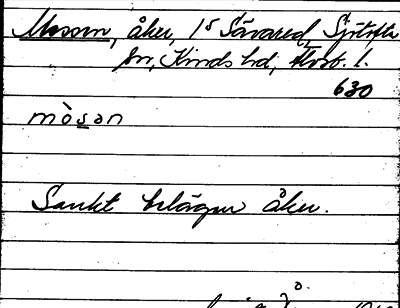 Mossen, åker, 15 Sävared, Sjötofta
sn, Kinds hd, Älvsb. l.
630
mò̀san
Sankt belägen åker.